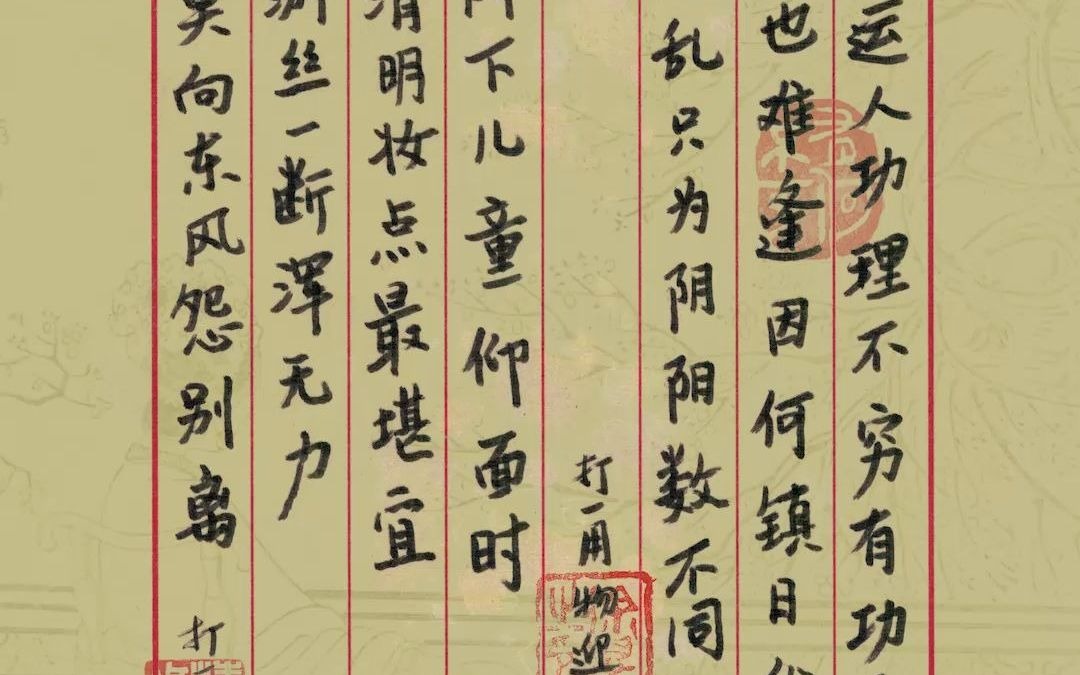 运人功理不穷有功
也难逢因何镇日
乱只为阴阳数不同
打一用物迎
下儿童仰面时
清明妆点最堪宜
游丝一断浑无力
莫向东风怨别离
打一